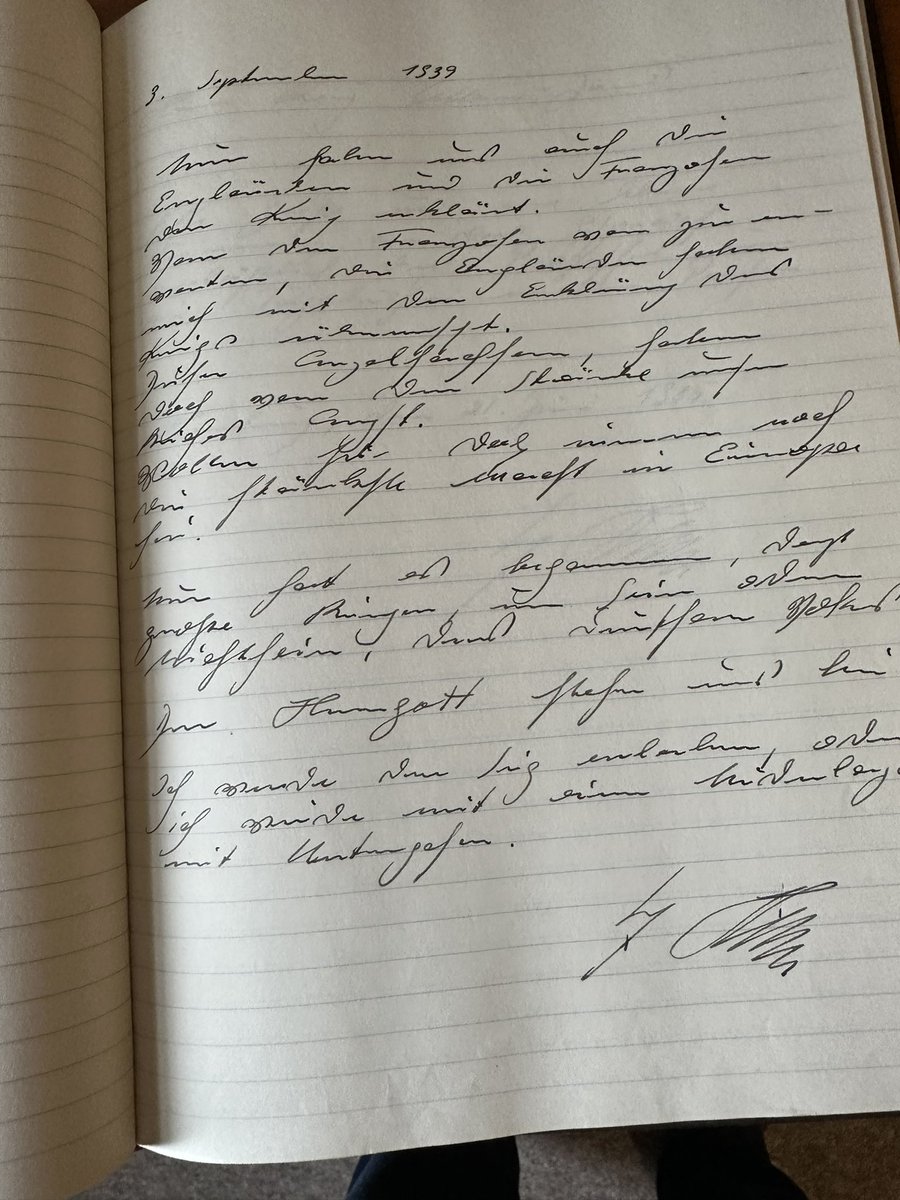 3. September 1939
Nun haben uns auch die
Engländer und die Franzosen
den Krieg erklärt.
Von den Franzosen war zu er-
warten, die Engländer haben
mich mit der Erklärung des
Kriegs überrascht.
Diese Angelsachsen, haben
doch von der Stärke unsers
Reiches Angst.
Wollen sie doch immer noch
die stärkste Macht in Europa
sei.
Nun hat es begonnen, das
große Ringen, um Sein oder
Nichtsein, des deutschen Volkes
Der Herrgott stehe uns bei
Ich werde den Sieg erleben, oder
ich würde mit einer Niederlage
mit Untergehen.